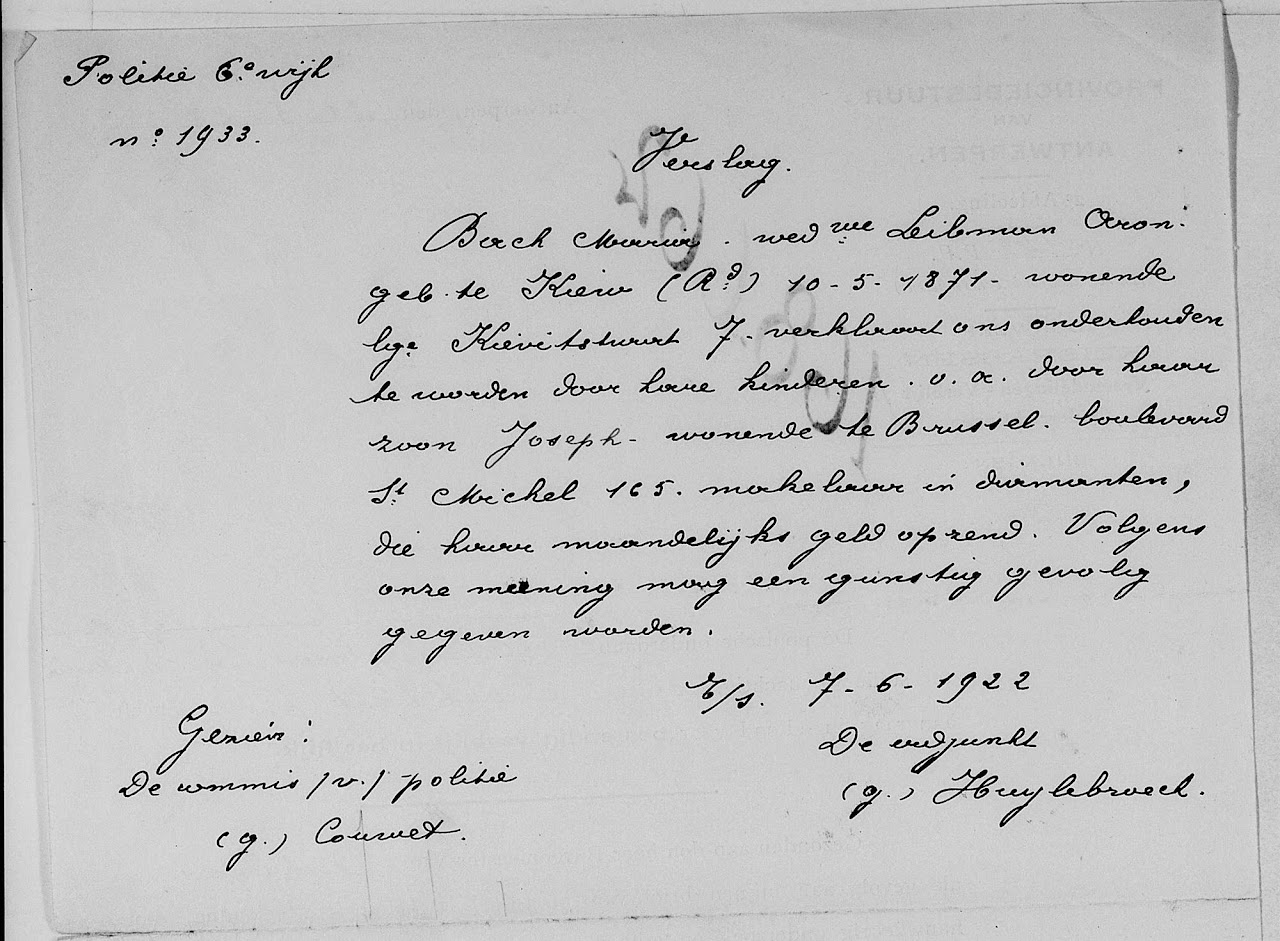 Politie 6e wijk
No 1933.
Verslag.
Bach Maria. wedwe Leibman Aron.
geb. te Kiew (Rd) 10-5-1871- wonende
lge Kievitstraat 7. verklaart ons onderhouden
te worden door hare kinderen. o. a. door haar
zoon Joseph- wonende te Brussel. boulevard
St Michel 165. makelaar in diamanten,
die haar maandelijks geld opzend. Volgens
onze meening mag een gunstig gevolg
gegeven worden.
7-6-1922
Gezien:
De adjunkt
De commis /v./ politie
(g.) Huylebroeck.
(g.)
PROVINCIEBESTUUR
VAN
ANTWERPEN.